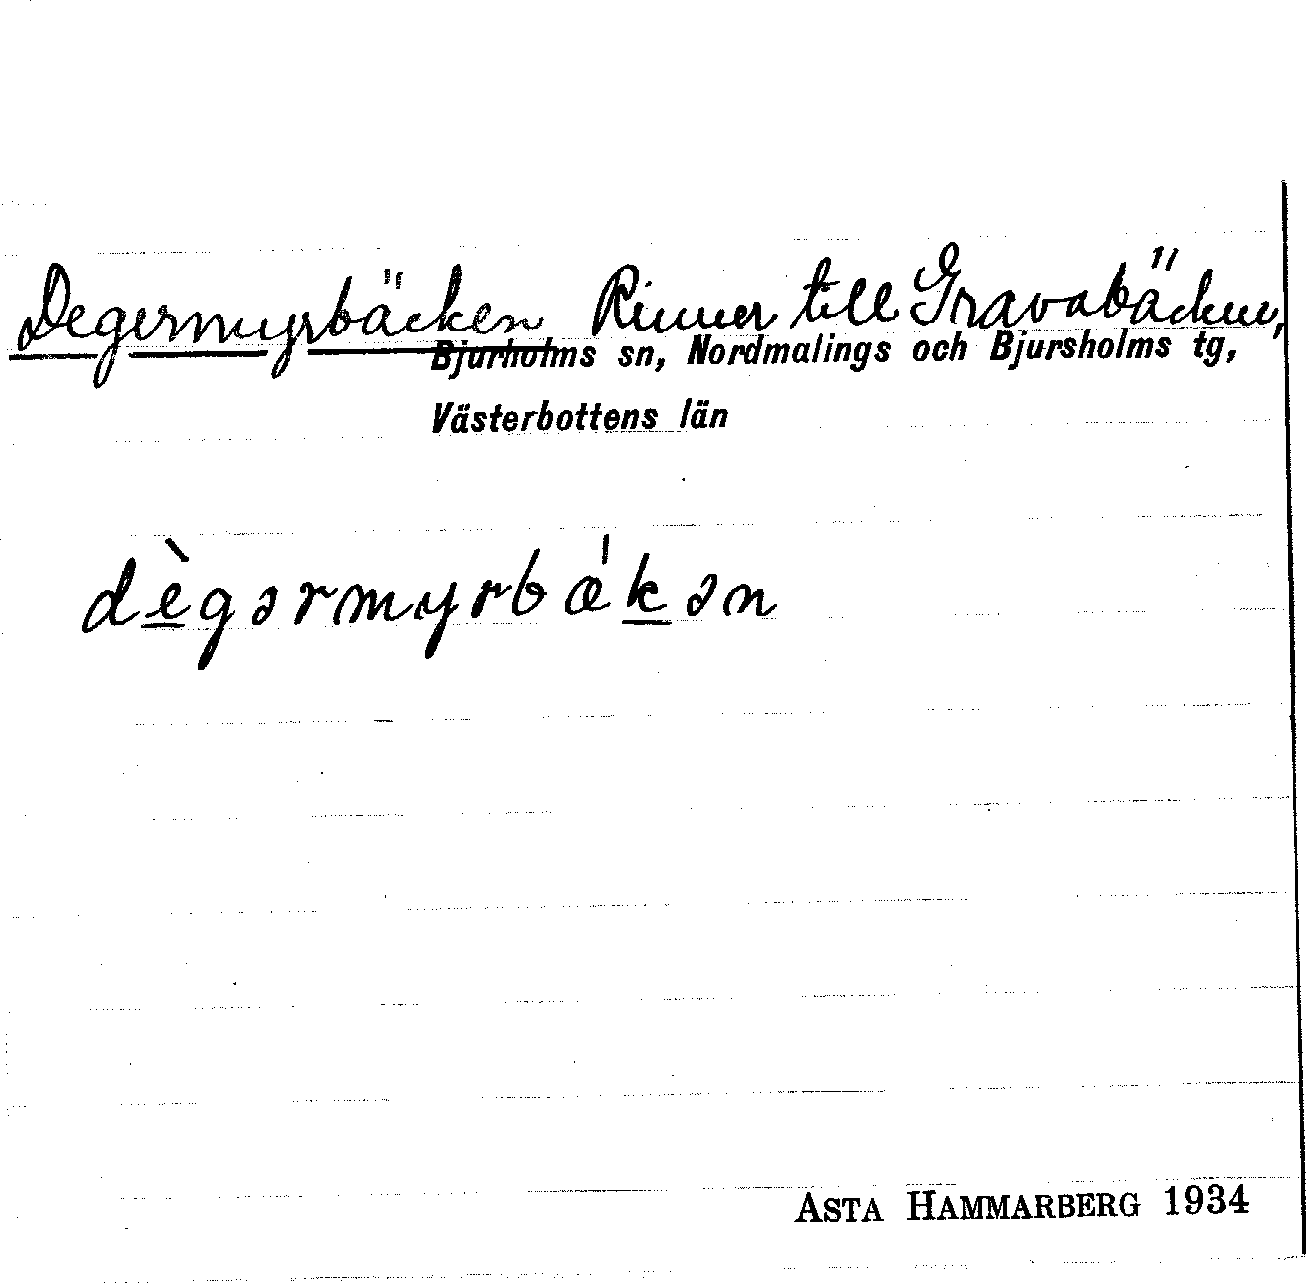 Degermyrbäcken Rinner till Gravabäcken,
Bjurholms sn, Nordmalings och Bjursholms tg,
Västerbottens län
dè̲gərmyrbæ̍k̲ən
ASTA HAMMARBERG 1934